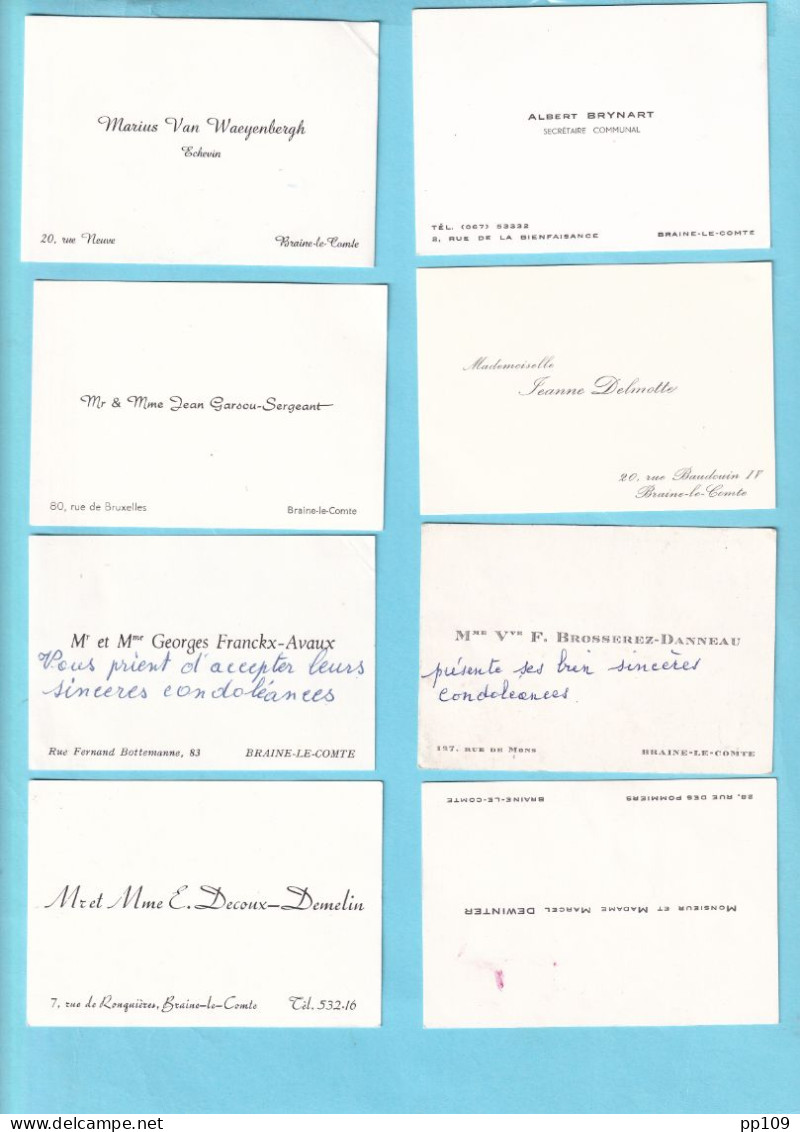 Marius Van Waeyenbergh
Echevin
20, rue Neuve
Braine-le-Comte
ALBERT BRYNART
SECRÉTAIRE COMMUNAL
TÉL. (067) 53332
2, RUE DE LA BIENFAISANCE
BRAINE-LE-COMTE
Mr & Mme Jean Garsou-Sergeant
80, rue de Bruxelles
Braine-le-Comte
Mademoiselle
Jeanne Delmotte
20, rue Baudouin IV
Braine-le-Comte
Mr et Mme Georges Franckx-Avaux
Vous prient d'accepter leurs
sincères condoléances
Rue Fernand Bottemanne, 83
BRAINE-LE-COMTE
MME VVE F. BROSSEREZ-DANNEAU
présente ses bien sincères
condoléances
197, RUE DE MONS
BRAINE-LE-COMTE
Mr et Mme E. Decoux-Demelin
7, rue de Ronquières, Braine-le-Comte
Tél. 532.16
MONSIEUR ET MADAME MARCEL DEWINTER
28, RUE DES POMMIERS
BRAINE-LE-COMTE
delcampe.net
pp109